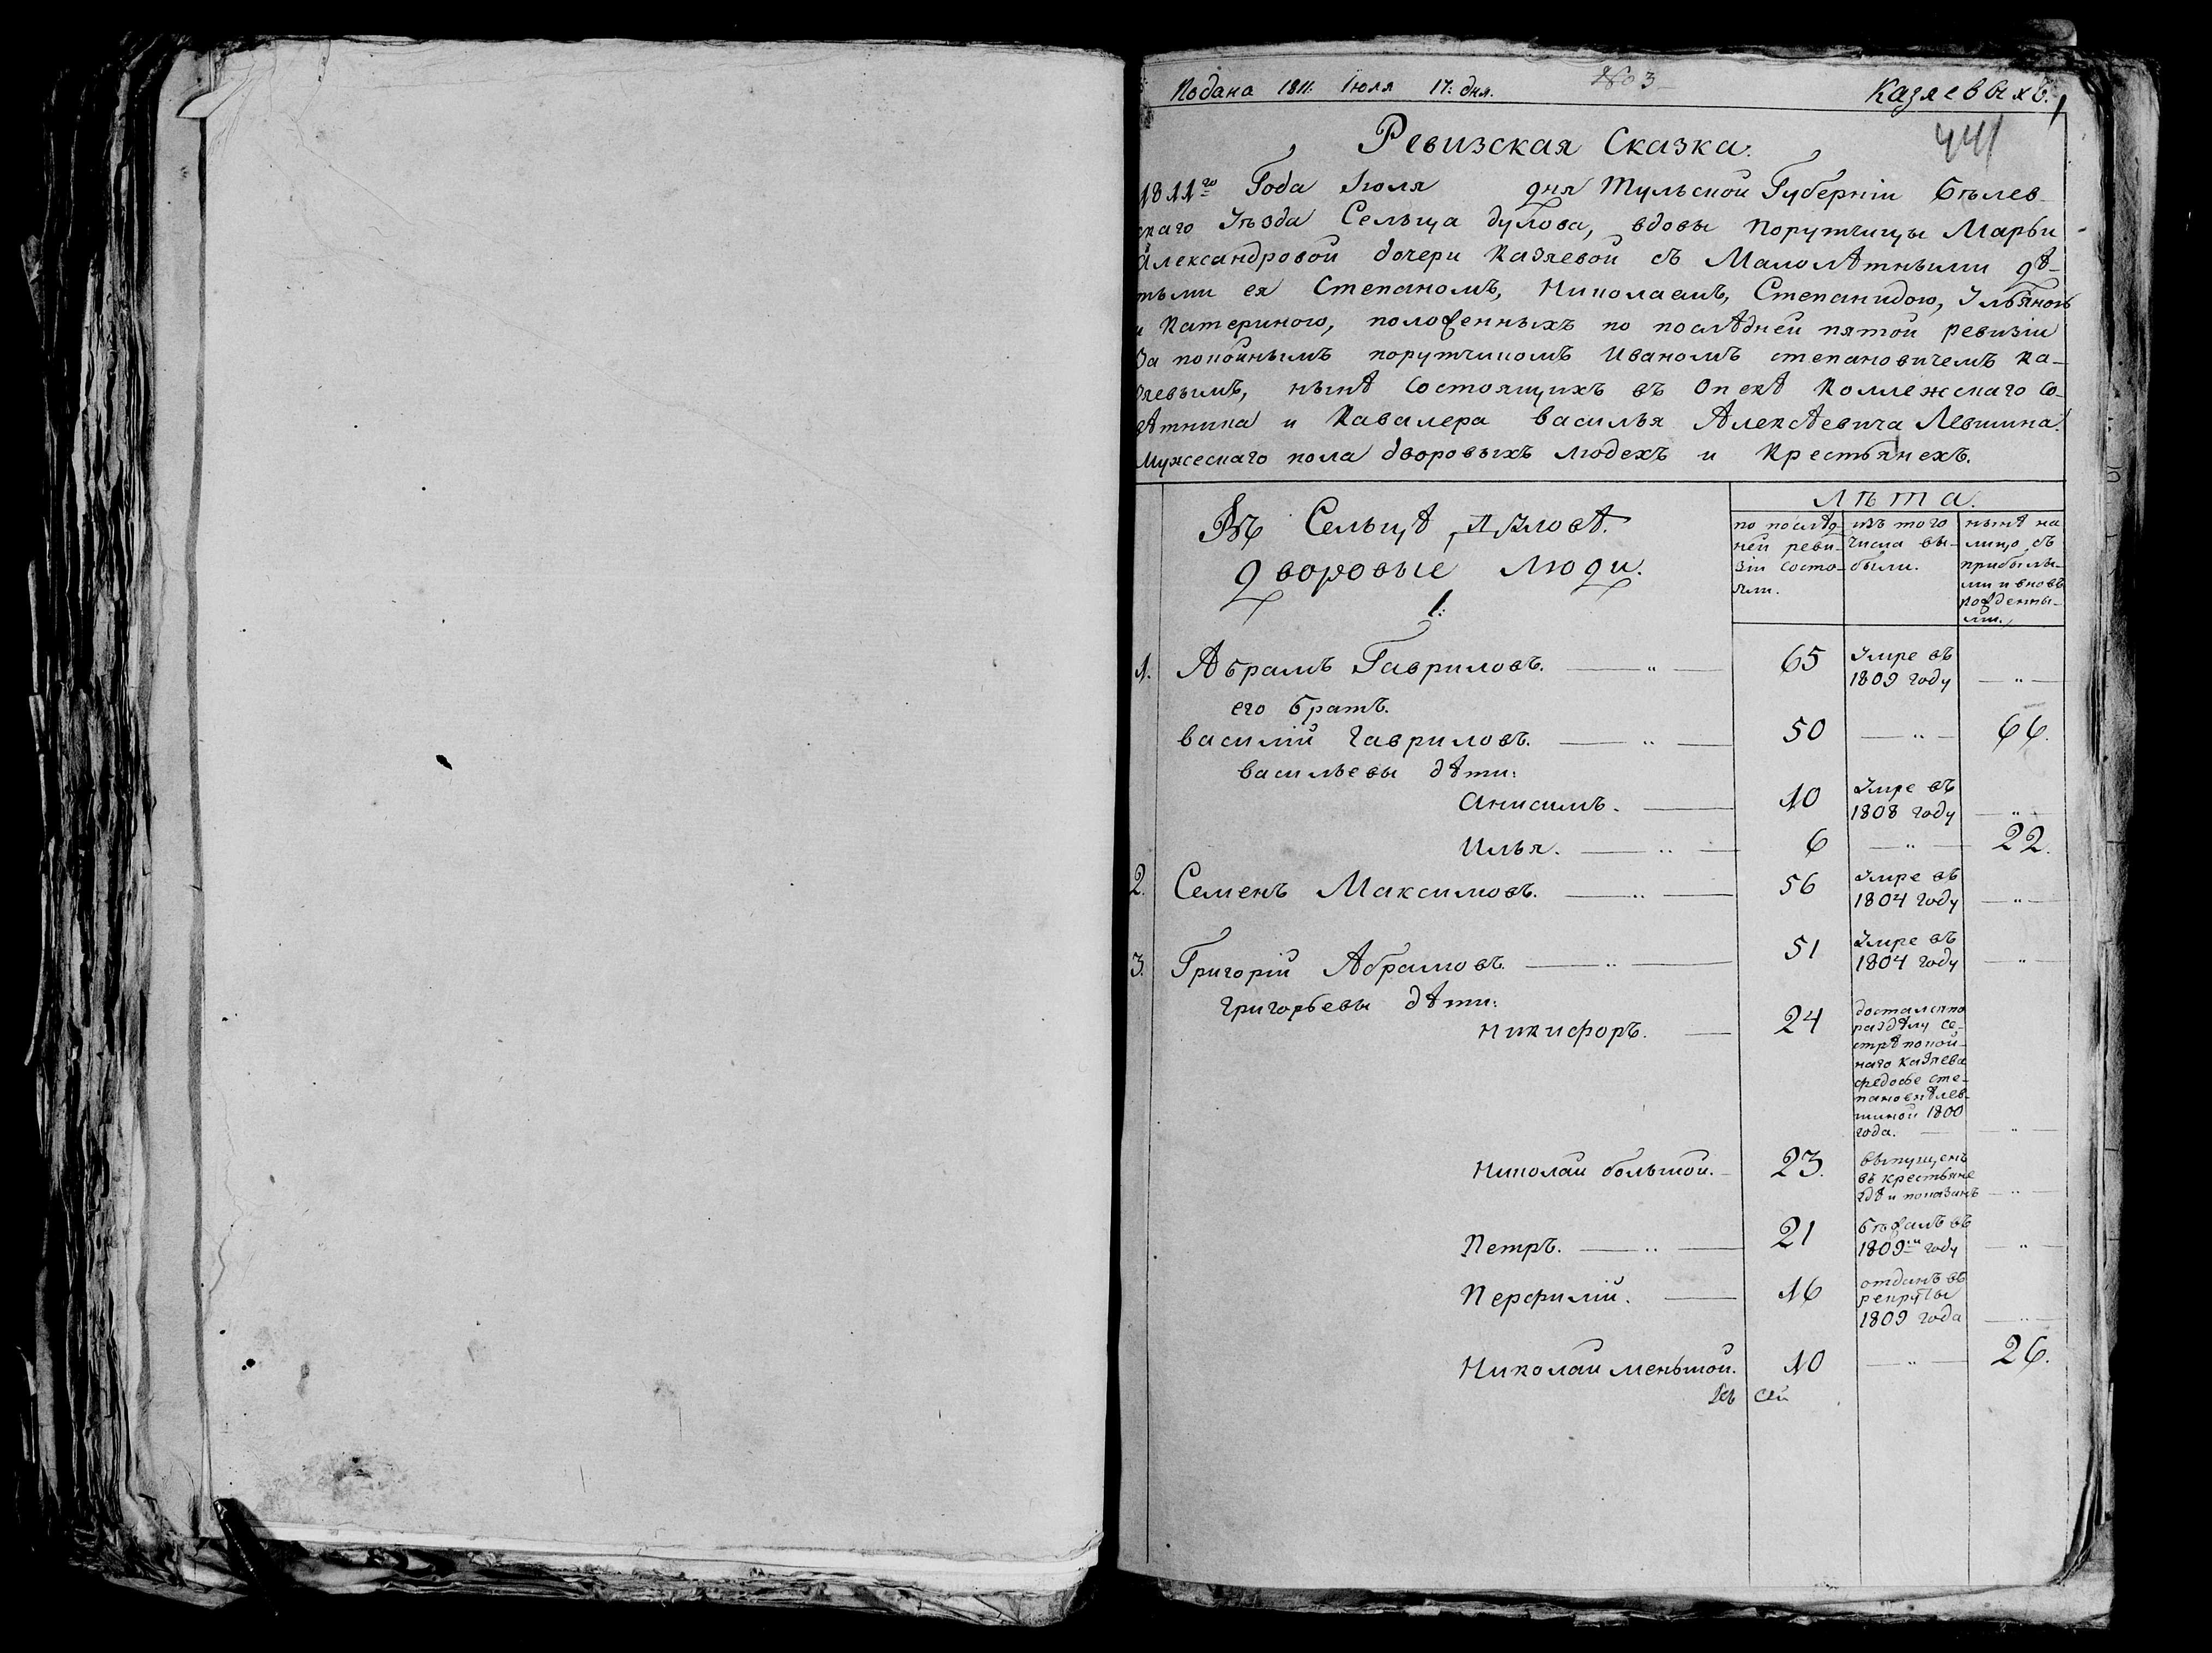 Подана 1811: Июля 17: дня. №3 Казяевыхъ. 1
441
Ревизская Сказка.
1811го Года Июля дня Тульской Губерніи Бѣлев-
скаго Уѣзда Сельца дулова, вдовы порутчицы Марьи
Александровой дочери Казяевой съ Малолѣтными дѣ-
тьми ея Степаномъ, Николаемъ, Степанидою, Ульяною
и Катериною, положенныхъ по послѣдней пятой ревизіи
За покойнымъ порутчикомъ Иваномъ степановичемъ Ка-
зяевымъ, нынѣ Состоящихъ въ Опекѣ Коллежскаго Со-
вѣтника и Кавалера василья Алексѣевича Левшина.
Мужескаго пола дворовыхъ людехъ и Крестьянехъ.
Въ Сельцѣ дуловѣ.
дворовые люди.
1:
Лѣта.
по послѣд-
ней реви-
зіи состо-
яли.
изъ того
числа вы-
были.
нынѣ на
лицо съ
прибылы-
ми и вновь
рожденны-
ми.
1. Абрамъ Гавриловъ. 65 Умре въ
1809 году
его братъ.
василій гавриловъ. 50 66.
васильевы дѣти:
Анисимъ. 10 Умре въ
1808 году
Илья. 6 22.
2. Семенъ Максимовъ. 56 Умре въ
1804 году
3. Григорій Абрамовъ. 51 Умре въ
1804 году
григорьевы дѣти:
Никифоръ. 24 достался по
раздѣлу се-
стрѣ покой-
наго Казяева
федосье сте-
пановнѣ лев-
шиной 1800
года.
Николай большой. 23. выпущенъ
въ крестьяне
гдѣ и показанъ
Петръ. 21 бѣжалъ въ
1809м году
Перфилій. 16 отданъ въ
рекруты
1809 года
Николай меньшой. 10 26.
Къ сей